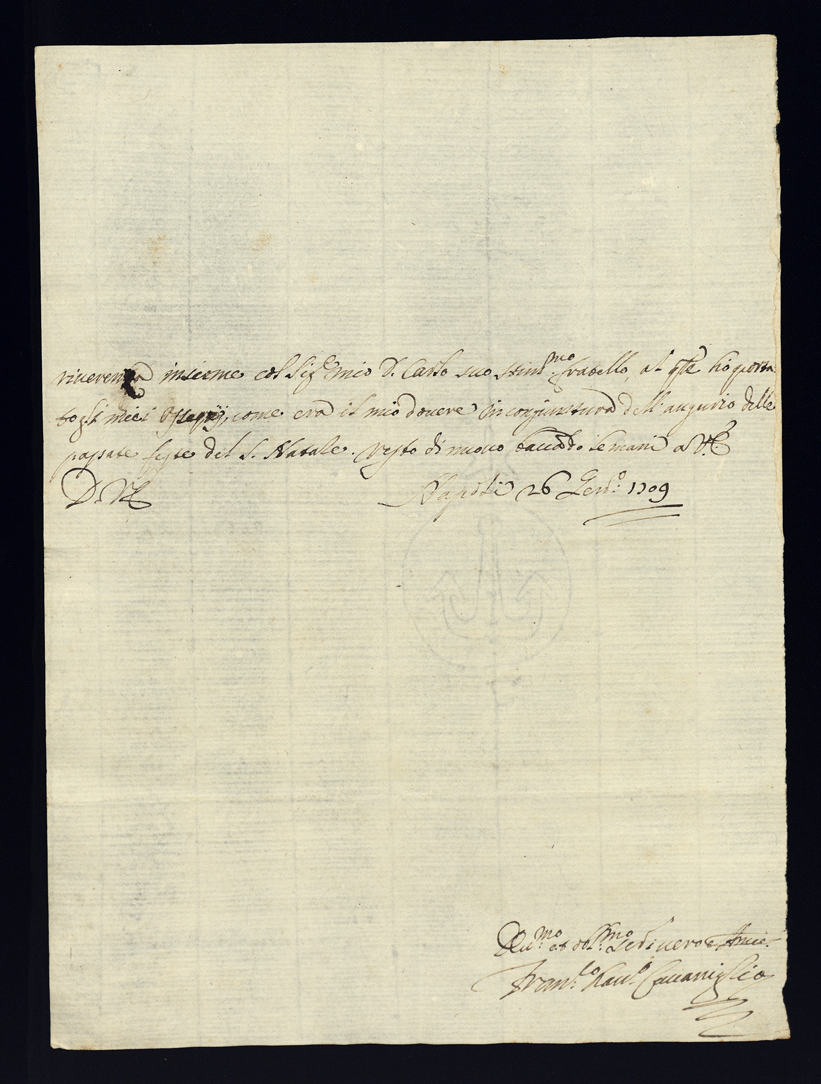 riverenza insieme col Sig.r mio D. Carlo suo Stim.mo fratello, al q̃le hò porta-
to gli miei ossequij, come era il mio dovere in conjuntura dell'augurio delle
passate feste del S. Natale. resto di nuovo baciãdo le mani a V.S.
D. V.S. Napoli 26 Gen.o 1709
Div.mo et obl.mo Ser. vero e Amico
Fran.co Sav.o Cavaniglia